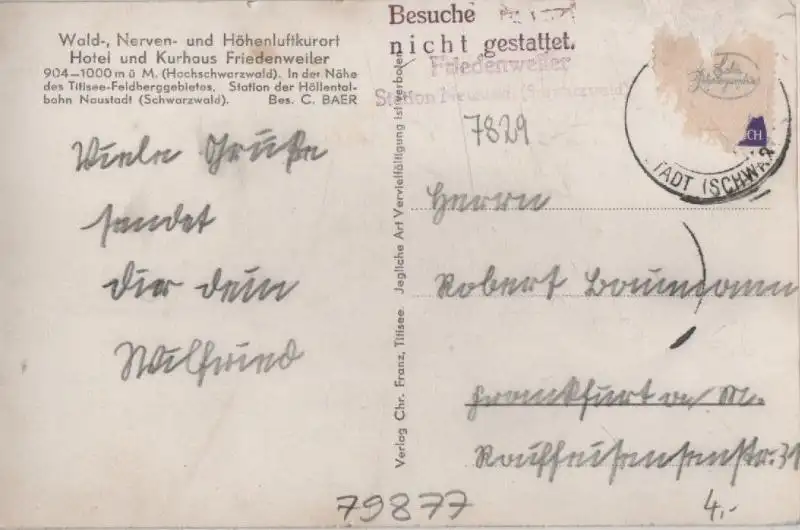 Wald-, Nerven- und Höhenluftkurort
Hotel und Kurhaus Friedenweiler
904—1000 m ü M. (Hochschwarzwald). In der Nähe
des Titisee-Feldberggebietes. Station der Höllental-
bahn Neustadt (Schwarzwald). Bes. C. BAER
Viele Grüße
sendet
Dir dein
Wilfried
Verlag Chr. Franz, Titisee. Jegliche Art Vervielfältigung ist verboten
Besuche
nicht gestattet.
Friedenweiler
Station Neustadt (Schwarzwald)
7829
CH
TADT (SCHWAR
Herrn
Robert Baumann
Frankfurt a/ M.
79877
4.-